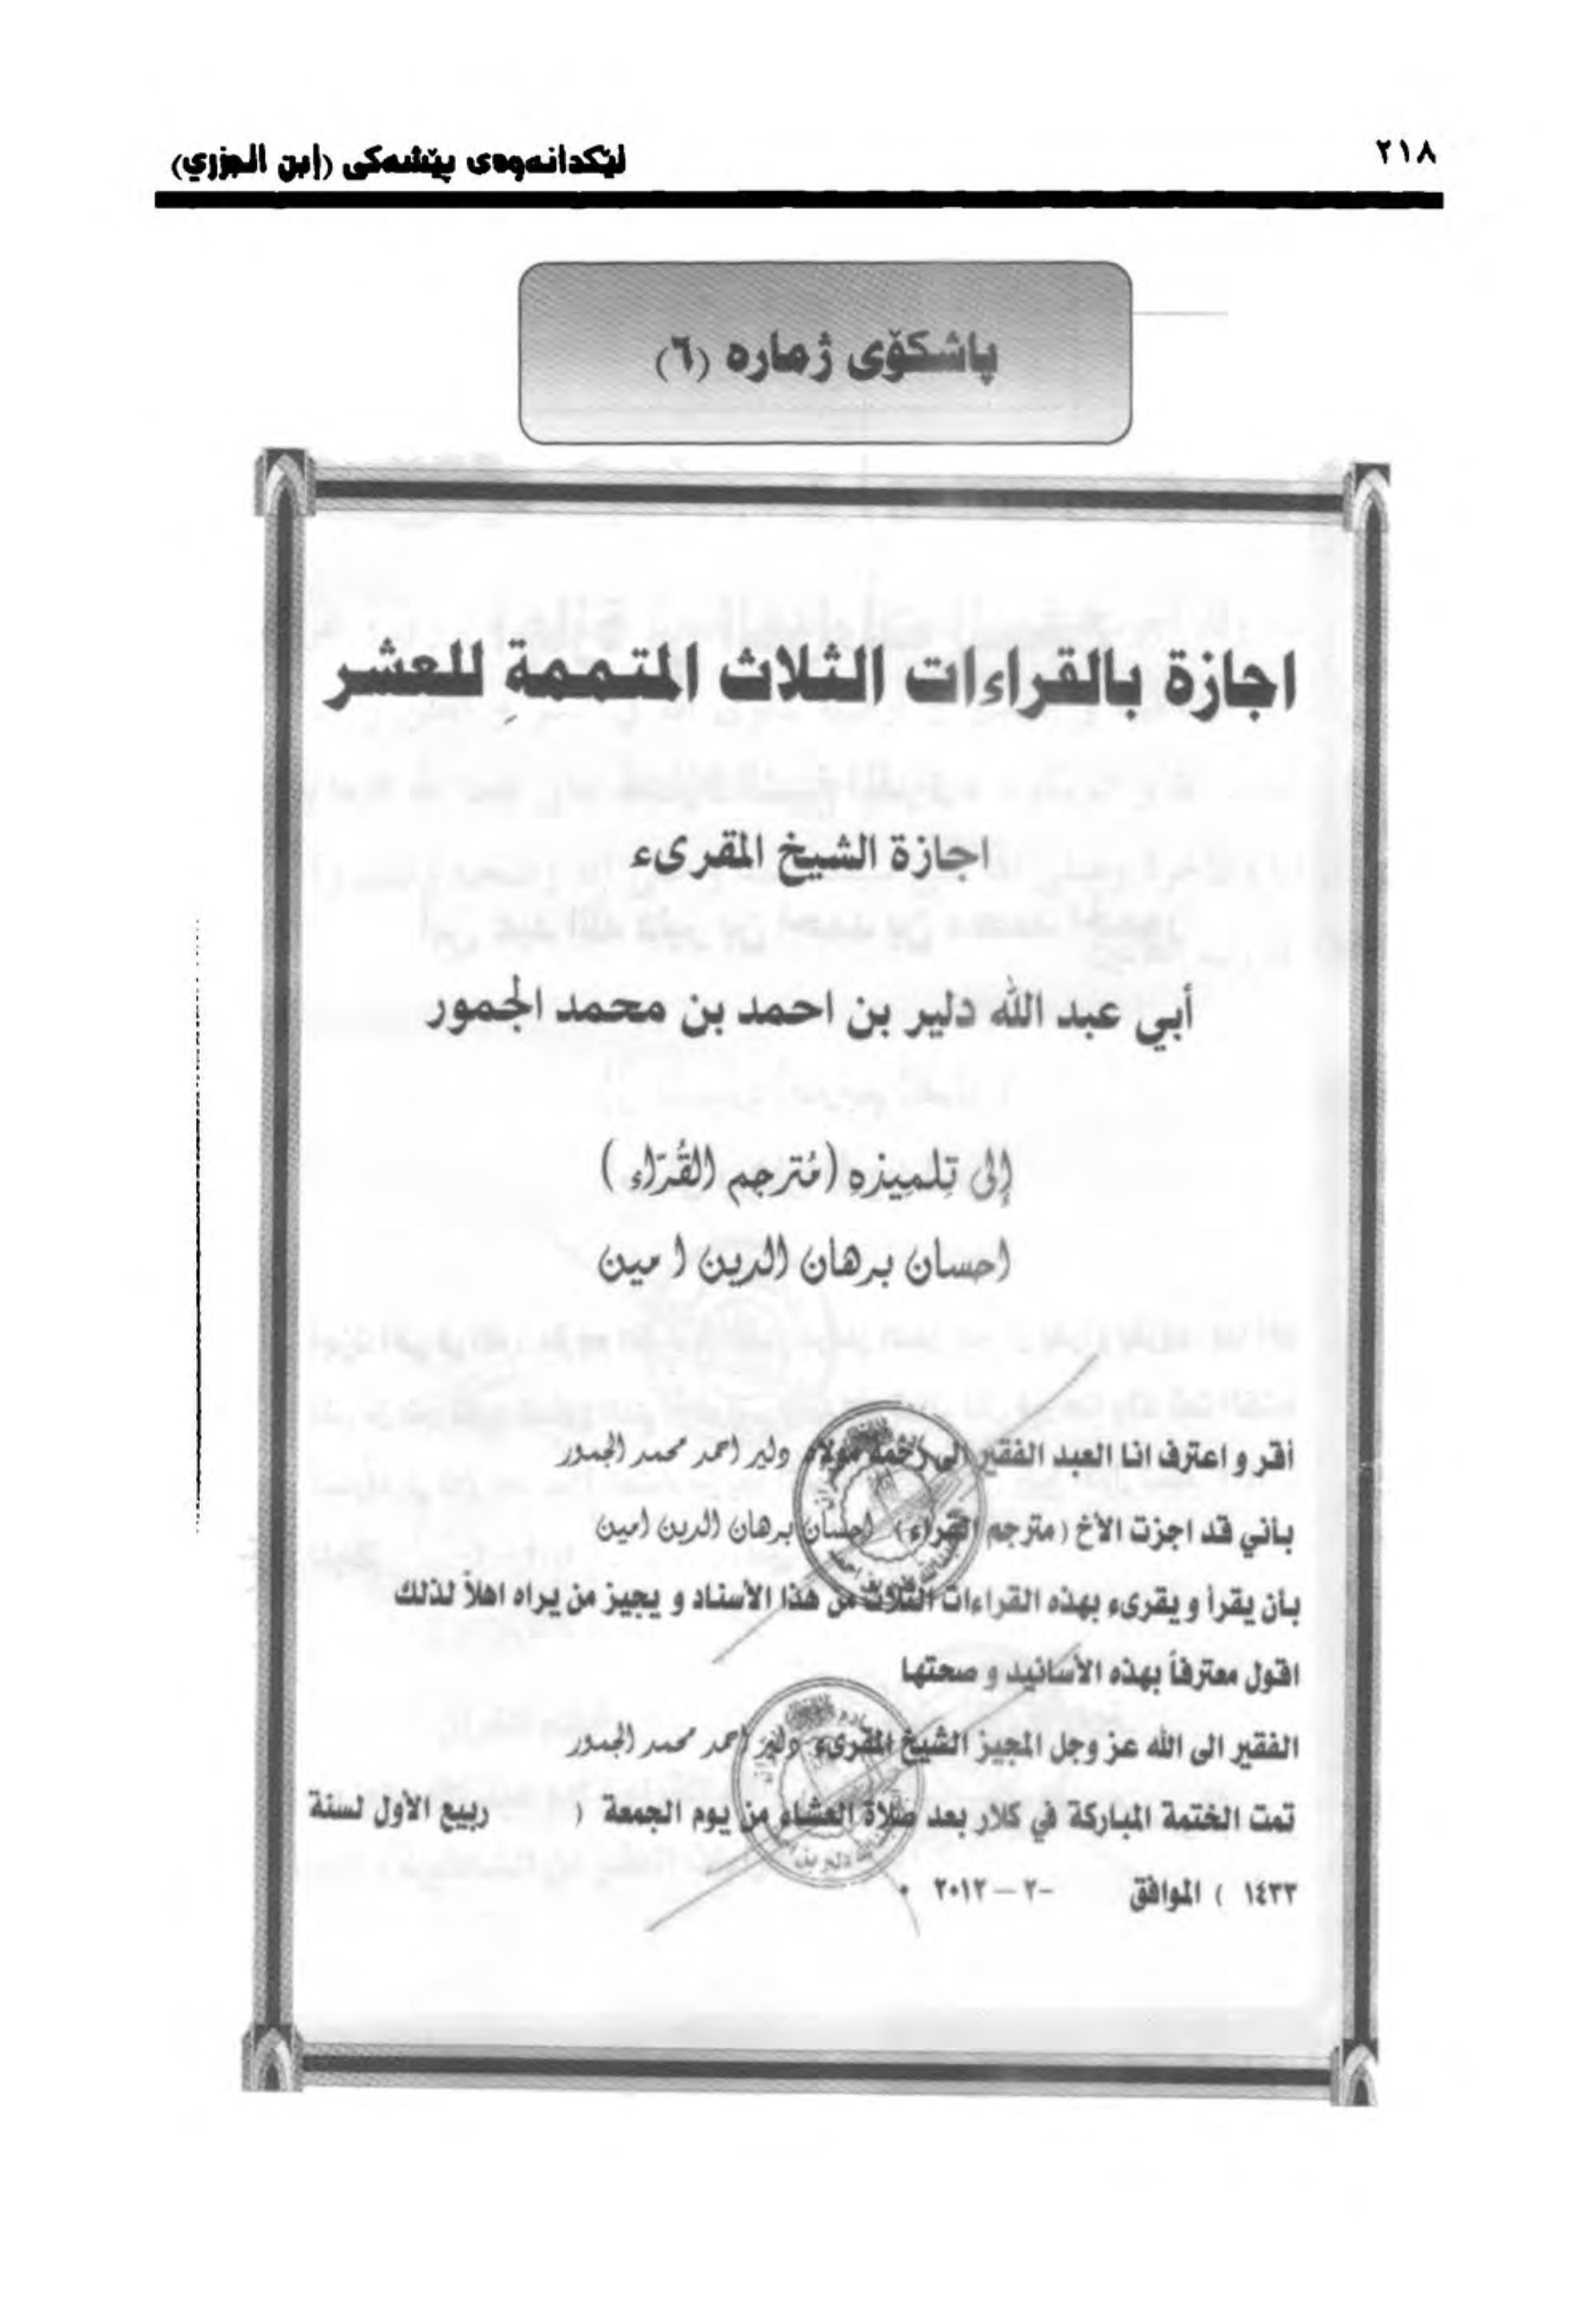 ٢١٨
لێکدانەوەی پێشەکی (إبن الجزري)
پاشکۆی ژمارە (٦)
اجازة بالقراءات الثلاث المتممةِ للعشر
اجازة الشيخ المقرىء
أبي عبد الله دلير بن احمد بن محمد الجمور
إلى تِلمِيذهِ (مُترجم القُرّاء )
احسان برهان الدين ا مين
أقر و اعترف انا العبد الفقير الى رحمة مولاه دلير احمد محمد الجمور
بأني قد اجزت الأخ ( مترجم القراء ) احسان برهان الدين امين
بأن يقرأ و يقرىء بهذه القراءات الثلاث من هذا الأسناد و يجيز من يراه اهلاً لذلك
اقول معترفاً بهذه الأسانيد و صحتها
الفقير الى الله عز وجل المجيز الشيخ المقرىء دلير احمد محمد الجمور
تمت الختمة المباركة في كلار بعد صلاة العشاء من يوم الجمعة ( ربيع الأول لسنة
١٤٣٣ ) الموافق -٢ – ٢٠١٢ .